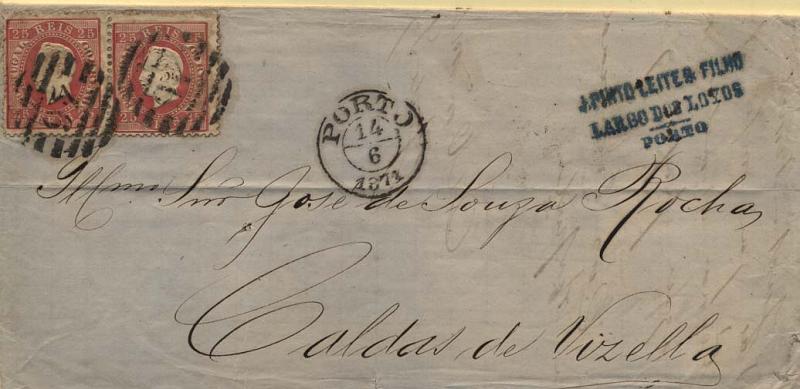 25 REIS 25
25 REIS 25
J. PINTO LEITE & FILHO
LARGO DOS LOYOS
PORTO
PORTO
14
6
1871
Illmo Snr José de Souza Rocha
Caldas de Vizella